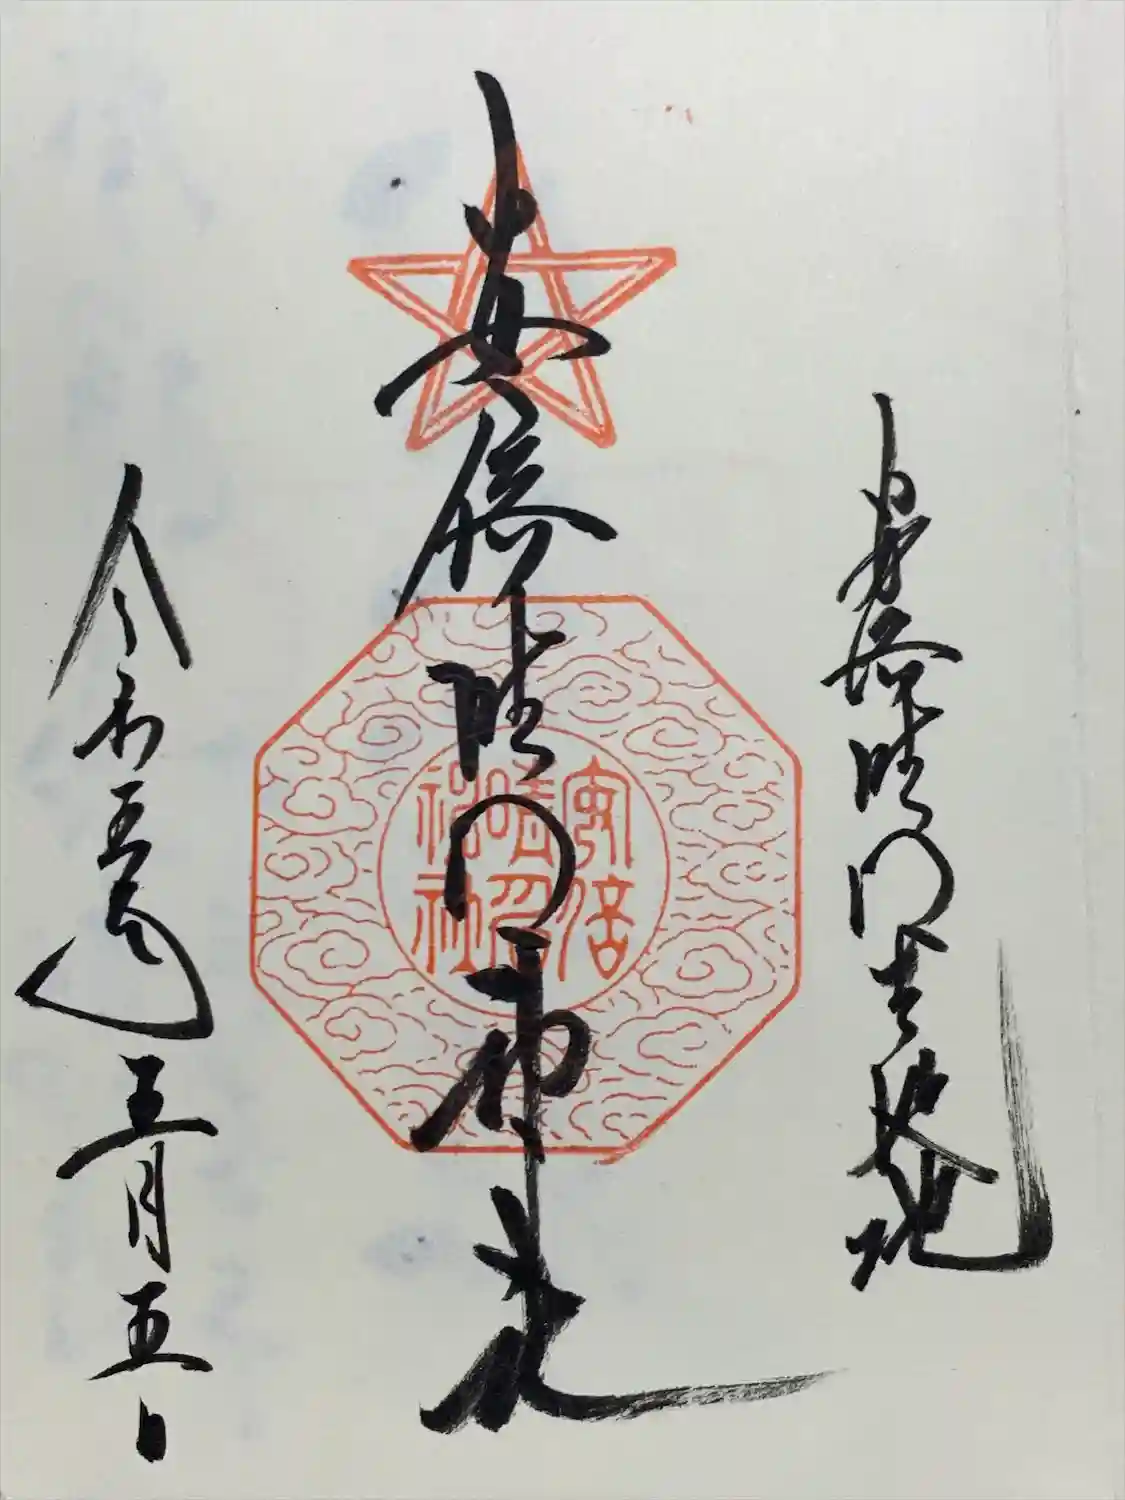 安倍晴明
安倍晴明神社
安倍
晴明
神社
令和五年五月五日